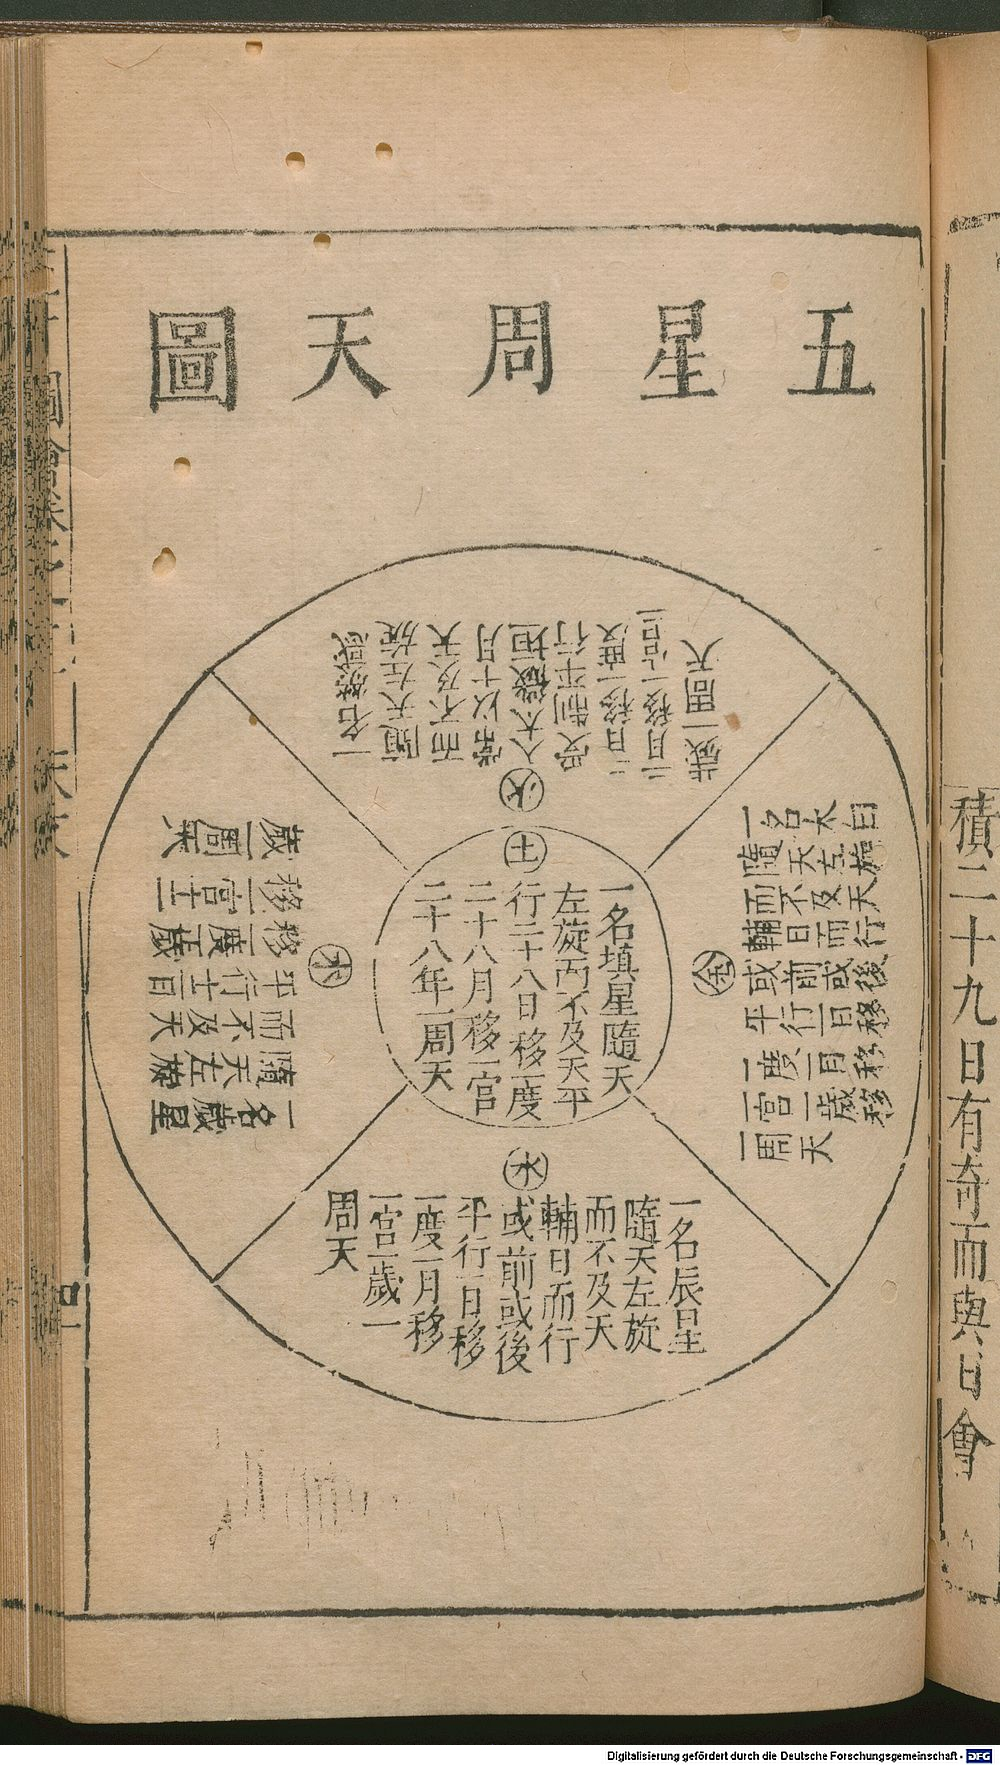 五星周天圖
火
一名熒惑
隨天左旋
而不及天
常以十月
入太微垣
受制平行
二日移一度
二月移一宮二
歲一周天
土
一名填星隨天
左旋而不及天平
行二十八日移一度
二十八月移一宮
二十八年一周天
金
一名太白
隨天左旋
而不及天
輔日而行
或前或後
平行一日移
一度一月移
一宮一歲移
一周天
木
一名歲星
隨天左旋
而不及天
平行十二日
移一度一歲
移一宮十二
歲一周天
水
一名辰星
隨天左旋
而不及天
輔日而行
或前或後
平行一日移
一度一月移
一宮一歲一
周天
積二十九日有奇而與日會
圖會
Digitalisierung gefördert durch die Deutsche Forschungsgemeinschaft - DFG